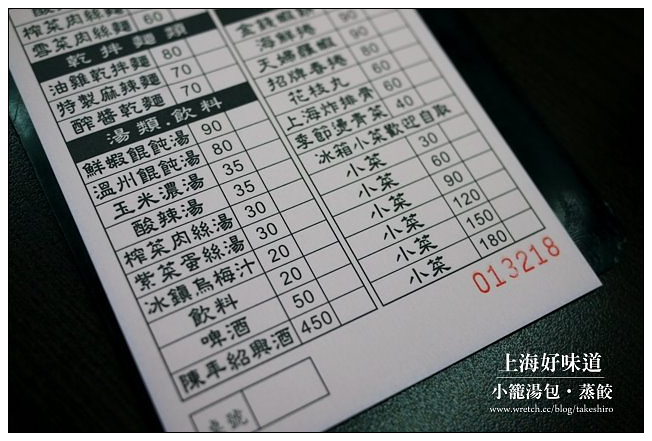 榨菜肉絲麵
雪菜肉絲麵 60
乾拌麵類
油雞乾拌麵 80
特製麻辣麵 70
醡醬乾麵 70
湯類.飲料
鮮蝦餛飩湯 90
溫州餛飩湯 80
玉米濃湯 35
酸辣湯 35
榨菜肉絲湯 30
紫菜蛋絲湯 30
冰鎮烏梅汁 20
飲料 20
啤酒 50
陳年紹興酒 450
桌號
金錢蝦餅
海鮮捲 90
天婦羅蝦 90
招牌春捲 80
花枝丸 70
上海炸排骨 60
季節燙青菜 40
冰箱小菜歡迎自取
小菜 30
小菜 60
小菜 90
小菜 120
小菜 150
小菜 180
013218
上海好味道
小籠湯包・蒸餃
www.wretch.cc/blog/takeshiro